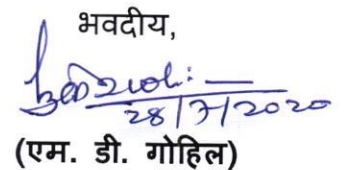 भवदीय,
28/7/2020
(एम. डी. गोहिल)